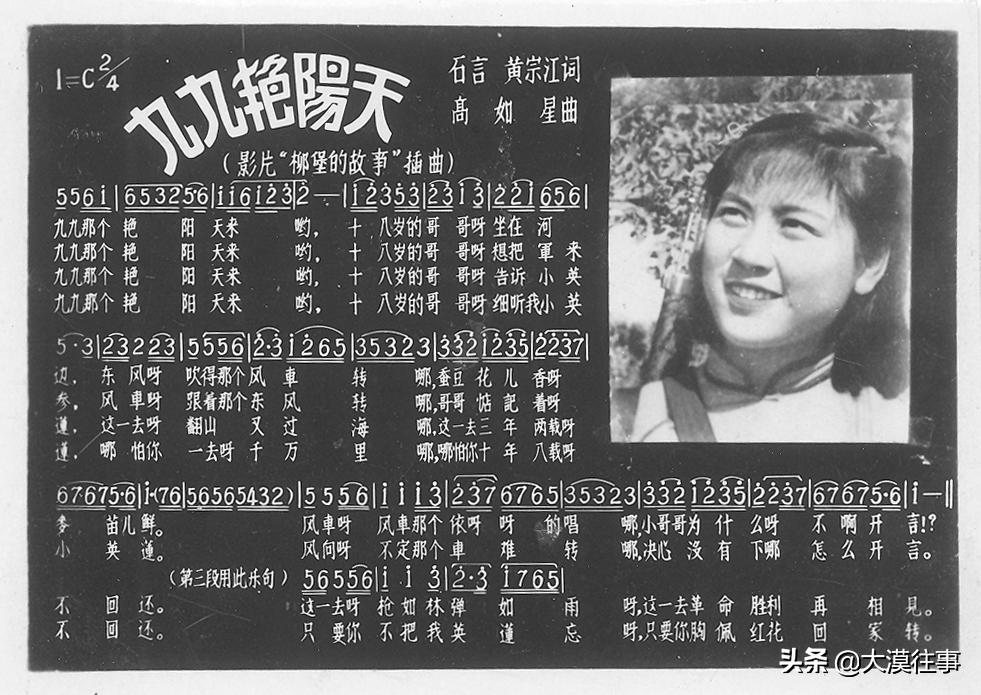 1=C 2/4
九九艳陽天
石言 黄宗江词
高如星曲
（影片“柳堡的故事”插曲）
5561|653256|116123|2—|12353|2313|221656|
九九那个 艳 阳 天来 哟， 十 八岁的哥 哥呀 坐在 河
九九那个 艳 阳 天来 哟， 十 八岁的哥 哥呀 想把 軍 来
九九那个 艳 阳 天来 哟， 十 八岁的哥 哥呀 告诉 小 英
九九那个 艳 阳 天来 哟， 十 八岁的哥 哥呀 细听我小 英
5·3|23223|5556|2·31265|35323|3321235|2237|
边， 东 风呀 吹得那个风 車 转 哪，蚕豆 花 儿 香呀
参， 风 車呀 跟着那个东 风 转 哪，哥哥 惦 記 着呀
蓮， 这一去呀 翻山 又 过 海 哪，这一去三 年 两载呀
蓮， 哪 怕你 一去呀 千 万 里 哪，哪怕你十 年 八载呀
67675·6|1·(76|56565432)|5556|1113|2376765|353223|3321235|2237|67675·6|1—‖
麦 苗儿 鲜。 风車呀 风車那个 依呀 呀 的唱 哪，小哥哥为 什 么呀 不 啊开 言!?
小 英 蓮。 风向呀 不定那个 車 难 转 哪，决心 沒 有 下哪 怎 么开 言。
（第三段用此乐句） 56556|113|2·31765|
不 回 还。 这一去呀 抢 如 林 弹 如 雨 呀，这一去革 命 胜利 再 相 見。
不 回 还。 只 要你 不把我 英 蓮 忘 呀，只要你胸 佩 红花 回 家 转。
头条 @大漠往事